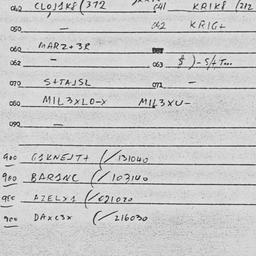 042 CLOJ1K8(372 041 KRIK8 (212
050 — 042 KRIG+
060 MARZ+3R
062 — 063 $)-S/+T...
070 S+TAJSL 072 —
080 MIL3XLO-X MIL3XU-
090 —
900 G1KNEJT+ (/131040
900 BAR1NC (/103140
900 AZELX1 (/021020
900 DAXC3X (/216030